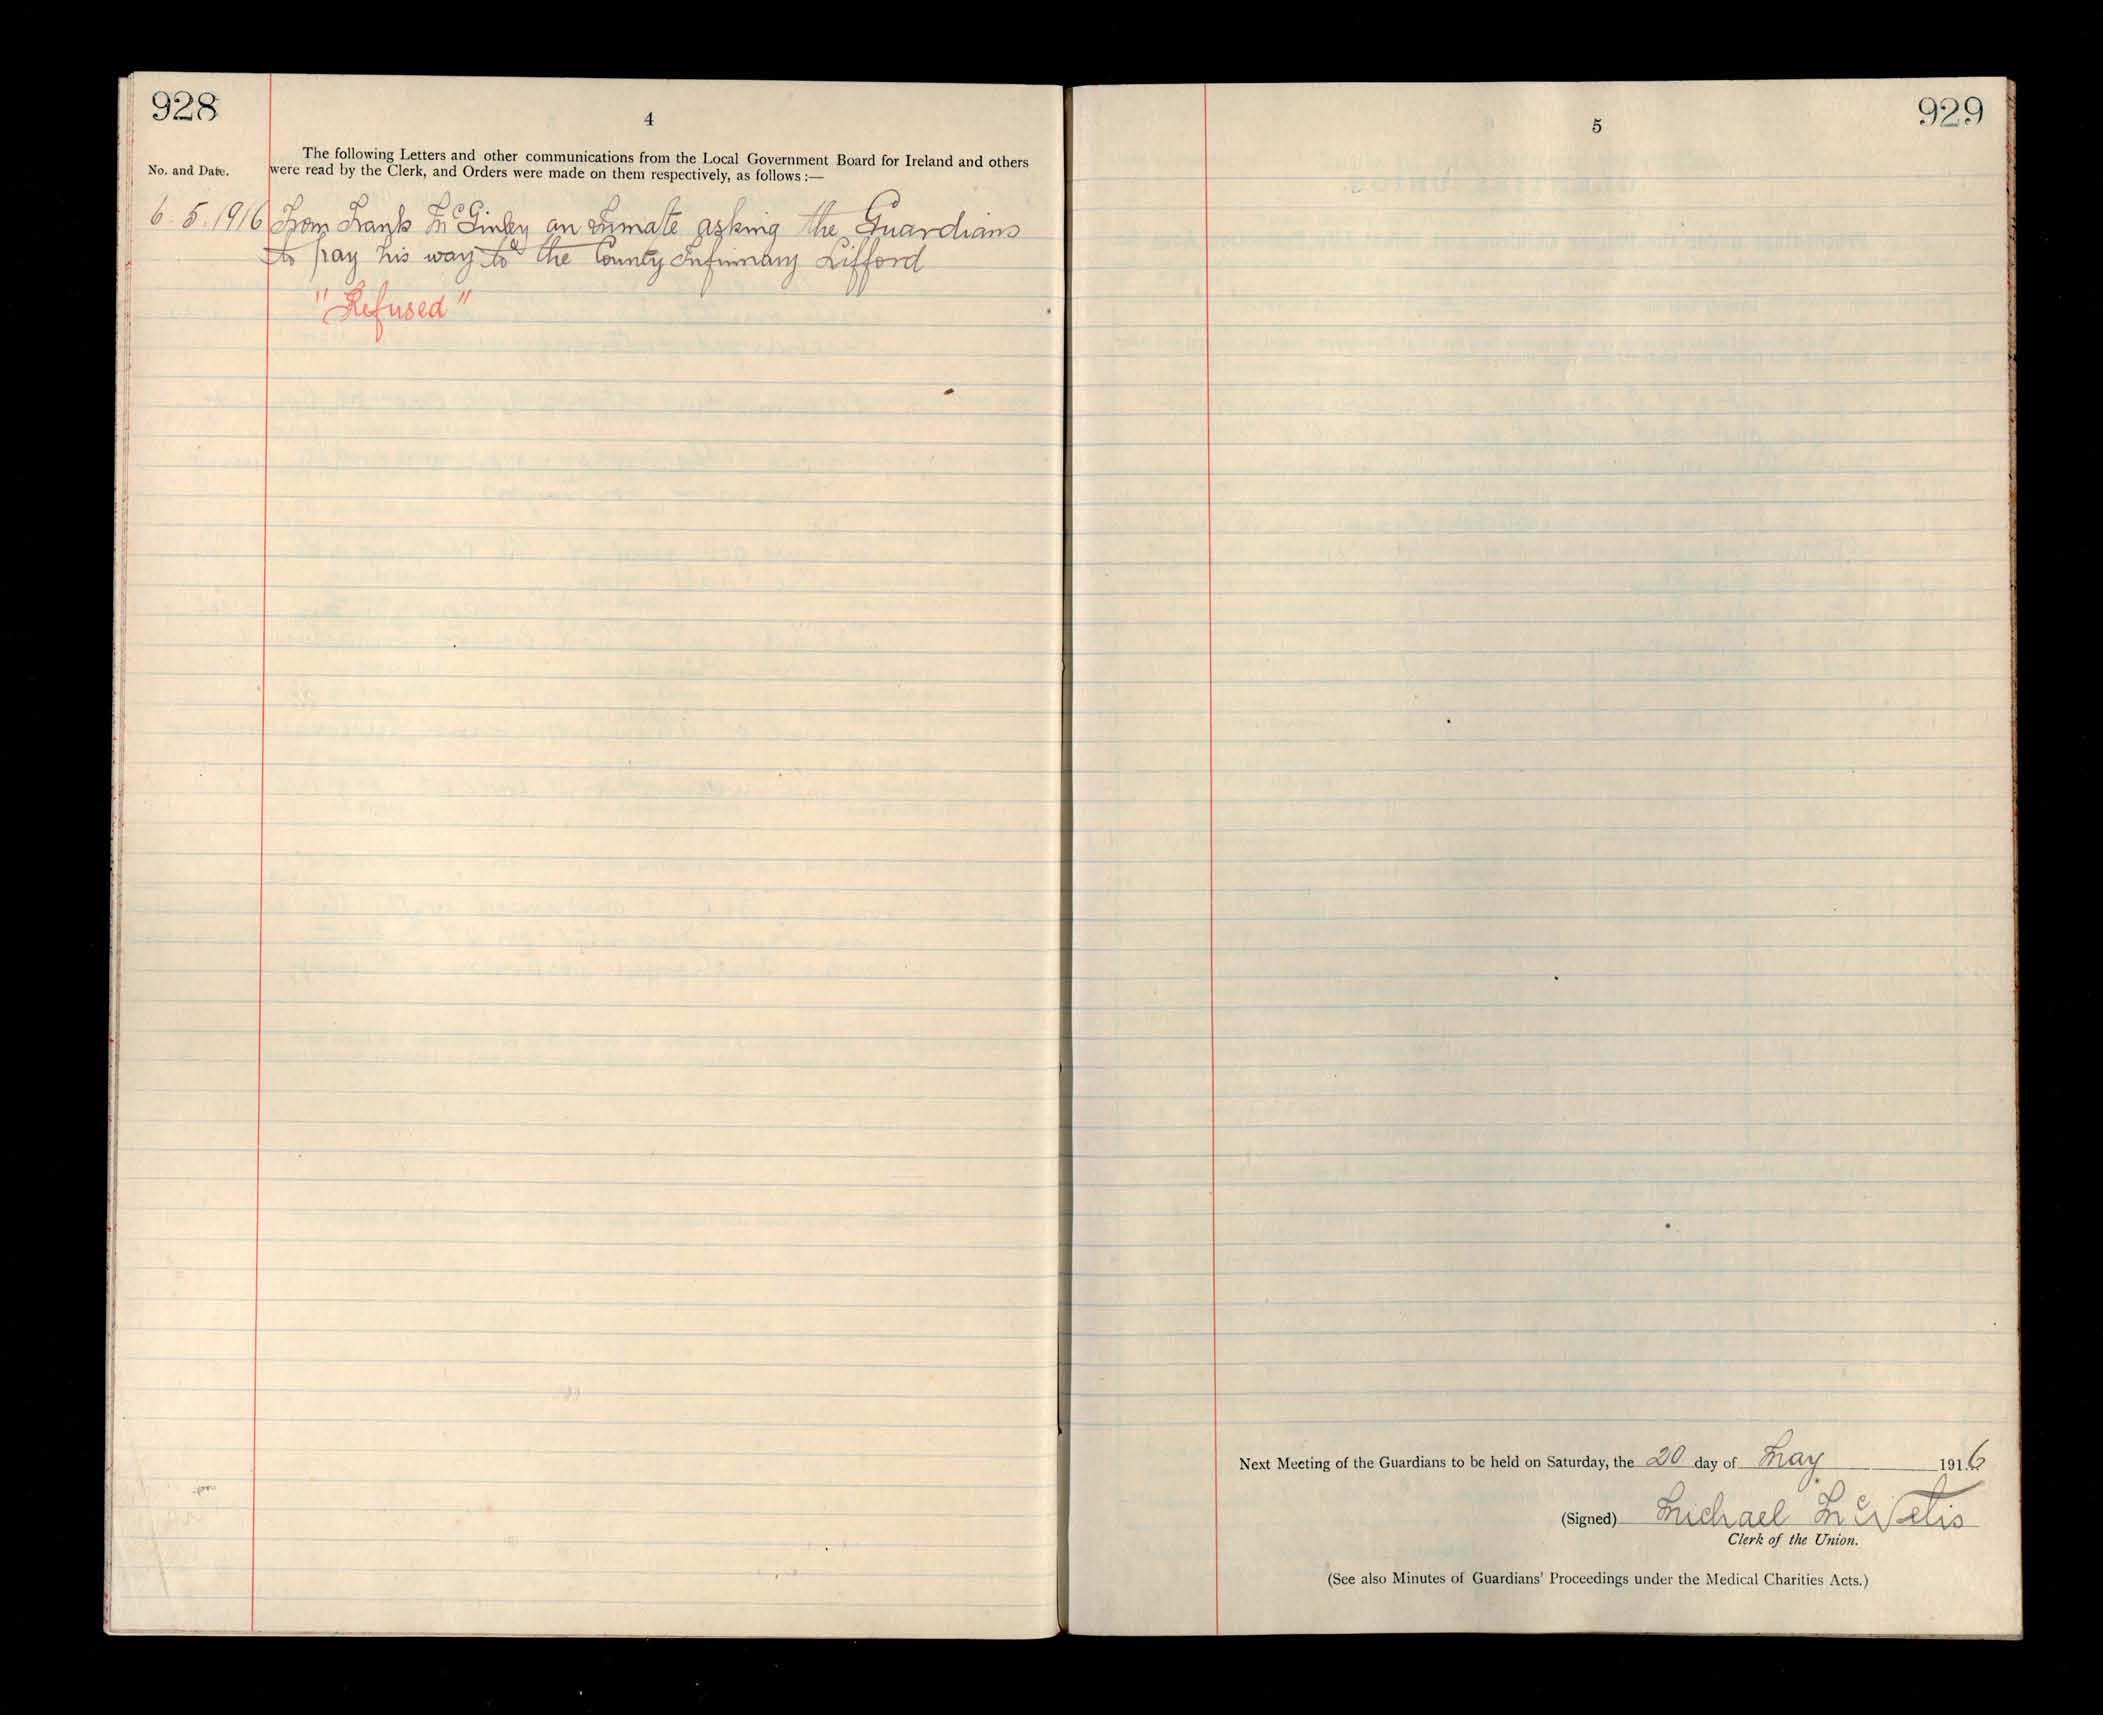 928
4
No. and Date.
The following Letters and other communications from the Local Government Board for Ireland and others
were read by the Clerk, and Orders were made on them respectively, as follows :—
6. 5. 1916 From Frank McGinley an Inmate asking the Guardians
to pay his way to the County Infirmary Lifford
"Refused"
929
5
Next Meeting of the Guardians to be held on Saturday, the 20 day of May 1916
(Signed) Michael
Clerk of the Union.
(See also Minutes of Guardians' Proceedings under the Medical Charities Acts.)